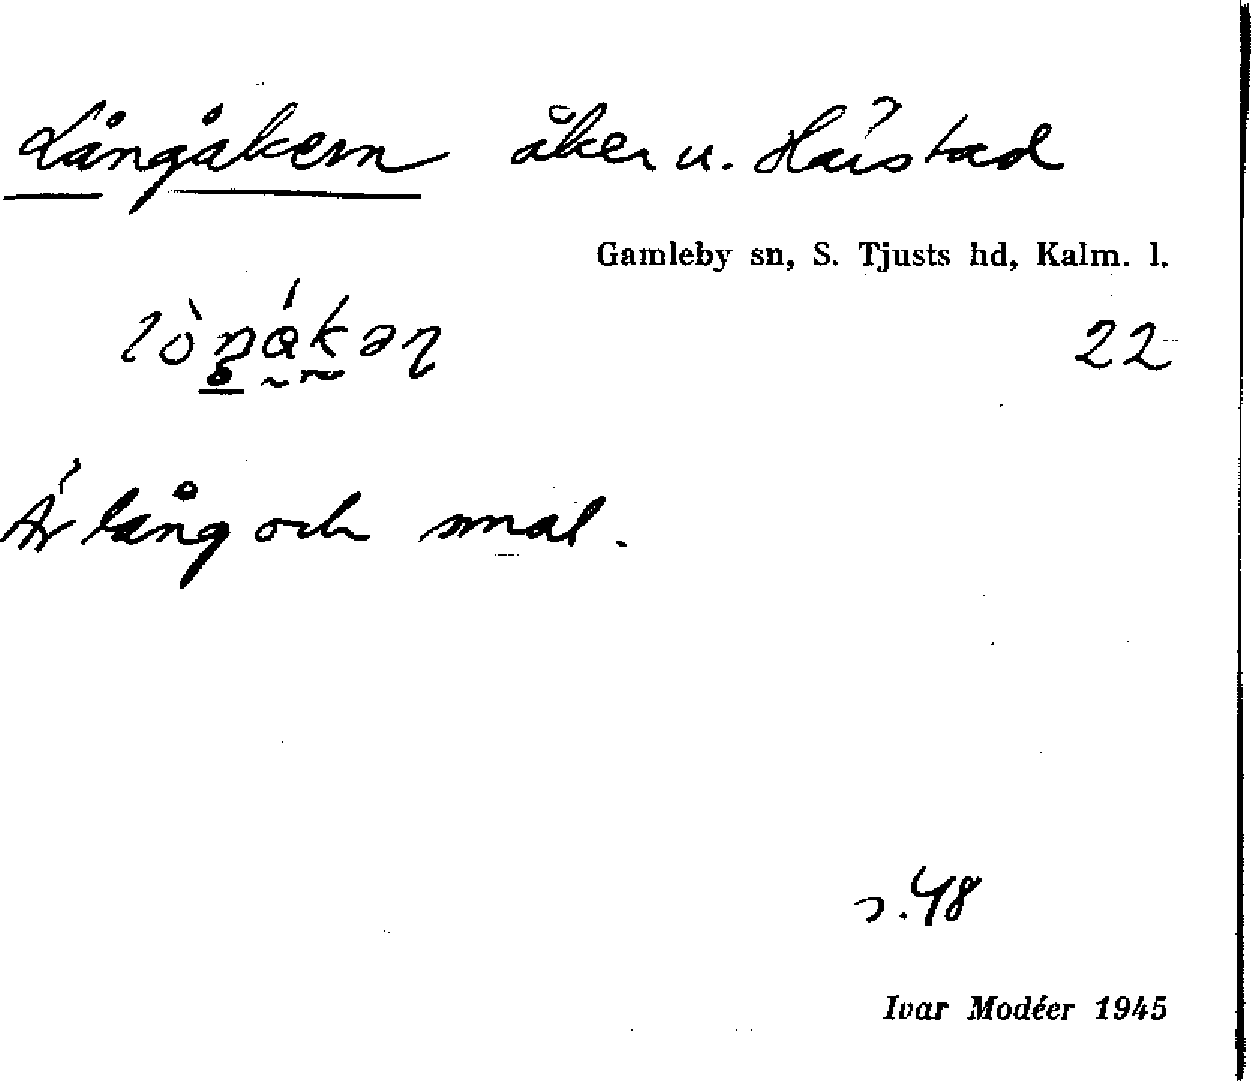 Långåkern åker u. Häistad
Gamleby sn, S. Tjusts hd, Kalm. l.
22
Är lång och smal.
s. 48
Ivar Modéer 1945